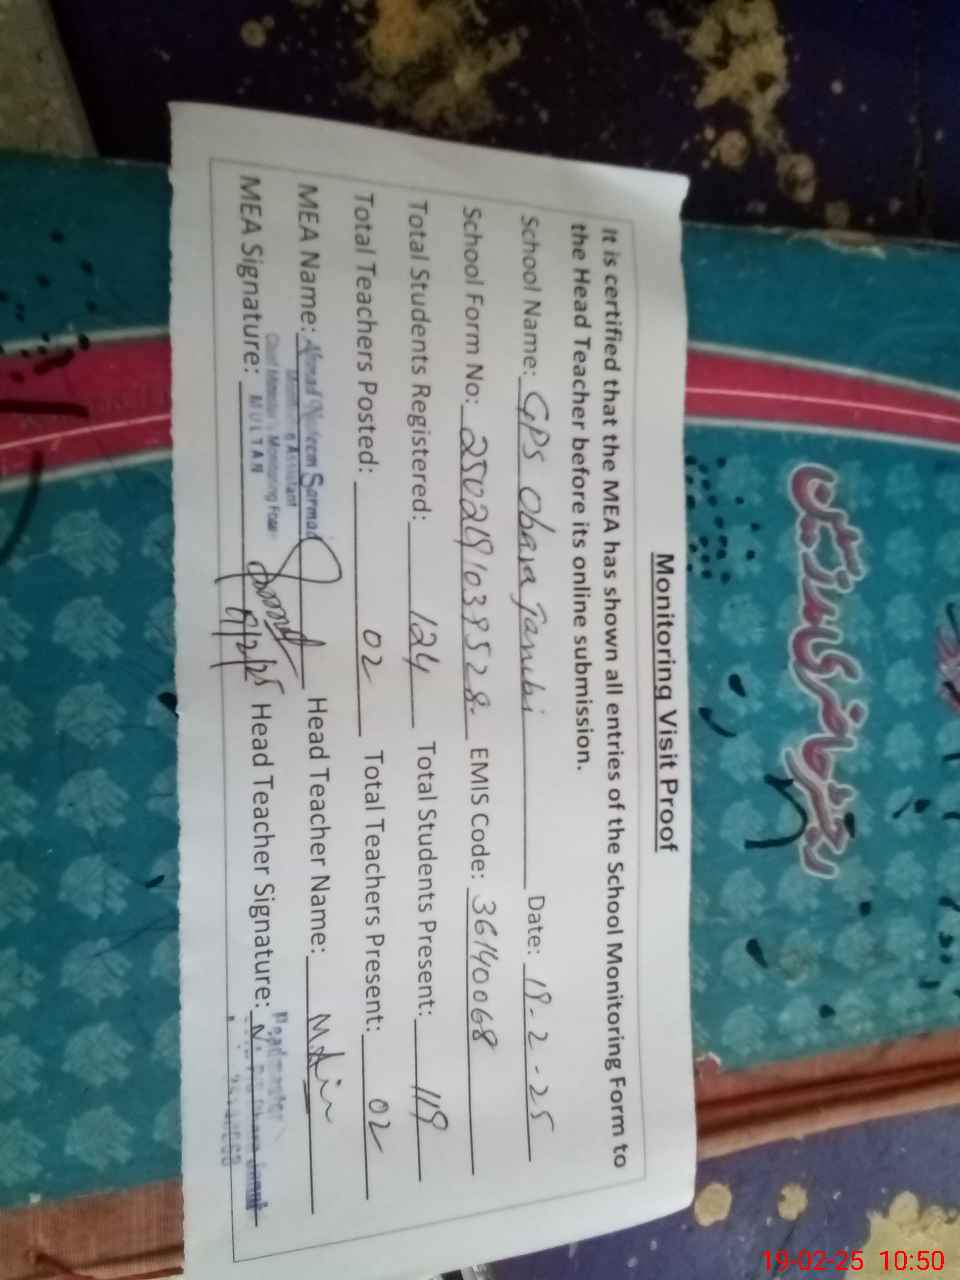 رجسٹر حاضری مدرسین
Monitoring Visit Proof
It is certified that the MEA has shown all entries of the School Monitoring Form to
the Head Teacher before its online submission.
School Name: GPS Obara Janubi Date: 19-2-25
School Form No: 2502191039528- EMIS Code: 36140068
Total Students Registered: 124 Total Students Present: 119
Total Teachers Posted: 02 Total Teachers Present: 02
MEA Name: Ahmad Sarmad Head Teacher Name:
Monitoring Assistant
Chief Minister's Monitoring Force
MULTAN
MEA Signature: 19/2/25 Head Teacher Signature:
Headmaster
19-02-25 10:50